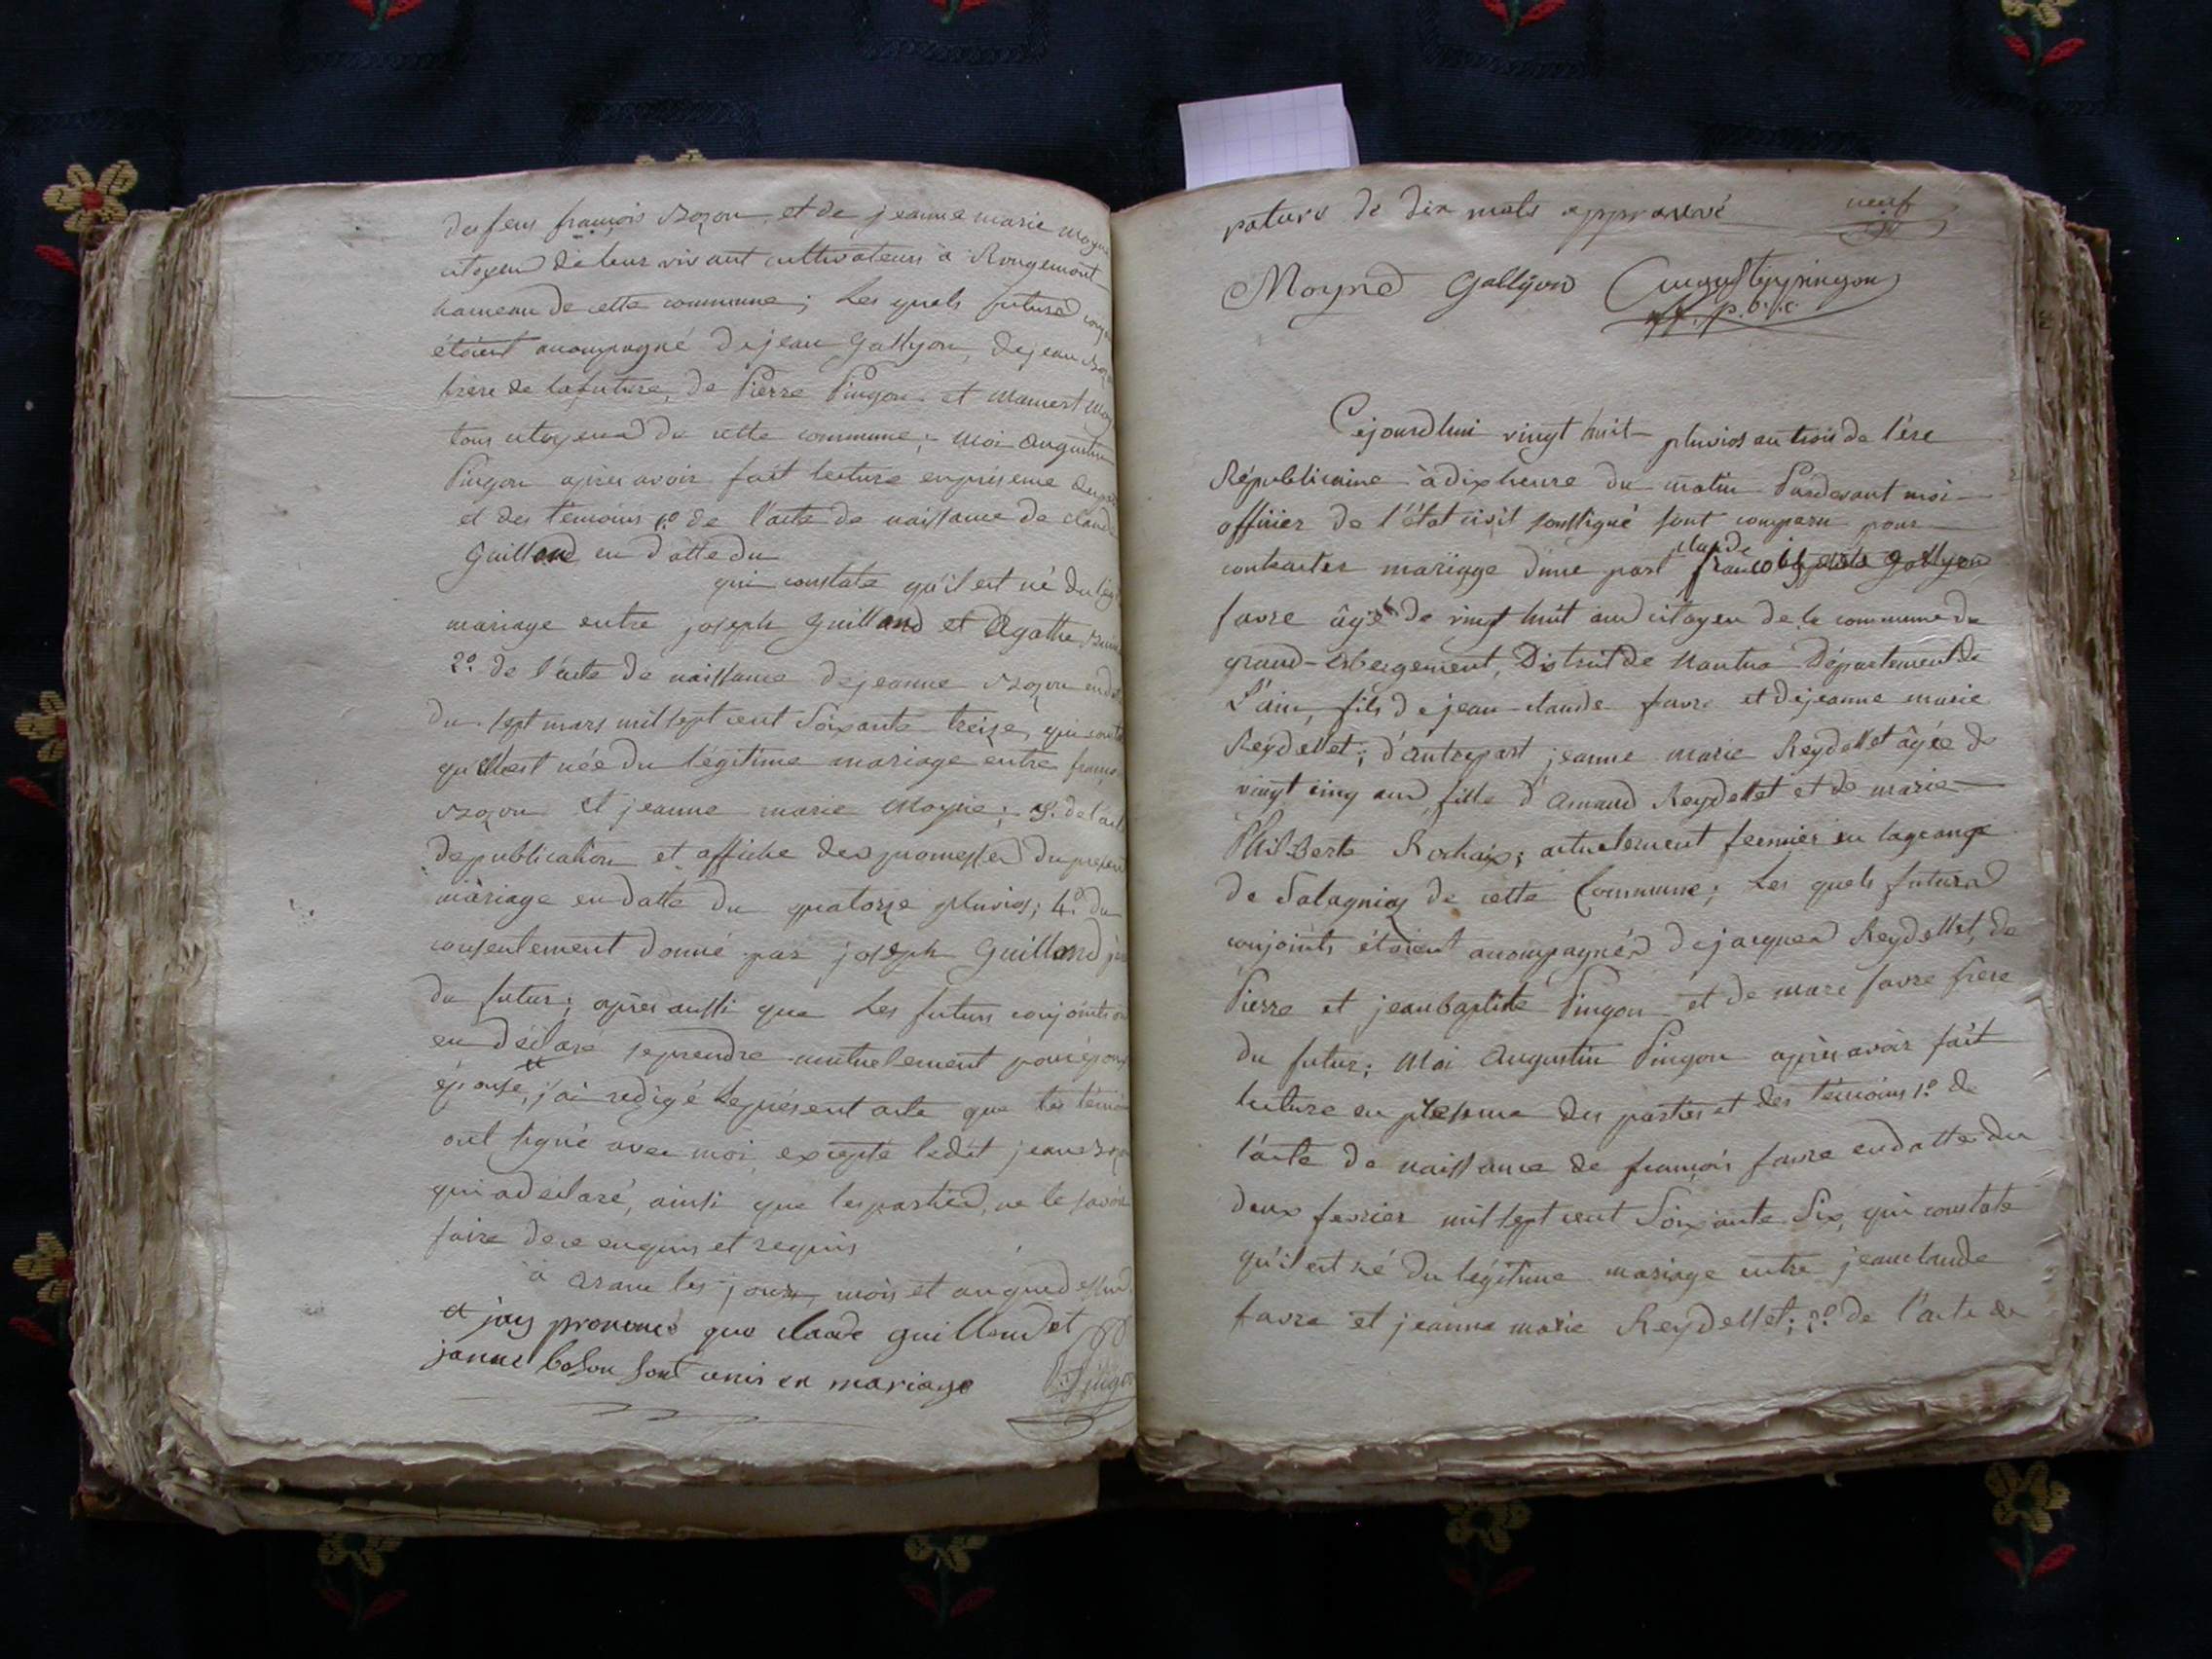 de feus françois Bozon et de jeanne marie moyne
citoyens de leur vivant cultivateurs à Rougemont
hameau de cette commune; Les quels futurs
étoient acompagné de jean Gallyon, de jean
frère de la future, de Pierre Pingon et mamert
tous citoyens de cette commune; moi augustin
Pingon après avoir fait lecture en présence
et des témoins 1.º de l'acte de naissance de claude
Guilland en datte du
qui constate qu'il est né du
mariage entre joseph Guilland et Agathe
2º. de l'acte de naissance de jeanne Bozon
du sept mars mil sept cent Soixante treize, qui
qu'elle est née du légitime mariage entre
Bozon et jeanne marie Moyne; 3º. de l'acte
de publication et affiche des promesses du présent
mariage en datte du quatorze pluvios; 4.º du
consentement donné par joseph Guilland
du futur; après aussi que Les futurs conjoints
eu déclaré se prendre mutuelement pour
épouse, j'ai redigé le présent acte que les
ont signé avec moi, excepté ledit jean
qui a déclaré, ainsi que les parties, ne le savoir
faire de ce enquis et requis
à aranc les jours, mois et an que dessus
et jay prononcé que claude guilland et
janne boson sont unis en mariage
rature de dix mots approuvé neuf
Moyne Gallyon Augustin pingon
Cejourdhui vingt huit pluvios an trois de l'ère
Républicaine à dix heure du matin Pardevant moi
officier de l'état civil soussigné sont comparu pour
claude
contracter mariage d'une part françois
favre âgé de vingt huit ans citoyen de la commune du
grand-abergement, District de Nantua Département de
L'ain, fils de jean-claude favre et de jeanne marie
Reydellet; d'autre part jeanne marie Reydellet âgée de
vingt cinq ans fille d'Amand Reydellet et de marie
Philiberte Rochaix; actuelement fermier en lagrange
de Salagniaz de cette Commune; Les quels futurs
conjoints étoient acompagnés de jacques Reydellet, de
Pierre et jean baptiste Pingon et de marc favre frère
du futur; Moi Augustin Pingon après avoir fait
lecture en présence des parties et des témoins 1.º de
l'acte de naissance de françois favre en datte du
deux fevrier mil sept cent Soixante Six, qui constate
qu'il est né du légitime mariage entre jean claude
favre et jeanne marie Reydellet; 2º. de l'acte de